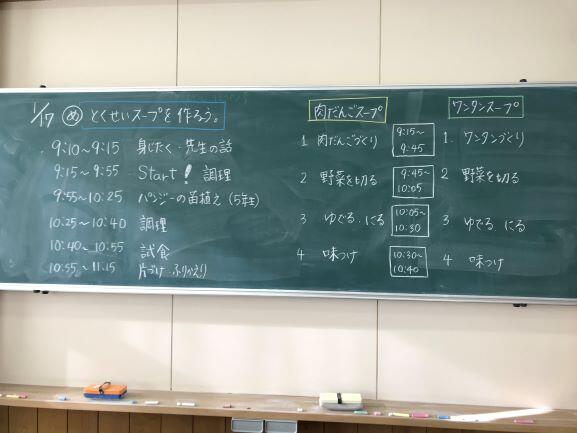 1/17 め とくせいスープを作ろう。
9:10～9:15 身じたく・先生の話
9:15～9:55 Start! 調理
9:55～10:25 パンジーの苗植え (5年生)
10:25～10:40 調理
10:40～10:55 試食
10:55～11:15 片づけ・ふりかえり
肉だんごスープ
1 肉だんごづくり
2 野菜を切る
3 ゆでる、にる
4 味つけ
9:15～9:45
9:45～10:05
10:05～10:30
10:30～10:40
ワンタンスープ
1. ワンタンづくり
2 野菜を切る
3 ゆでる、にる
4 味つけ